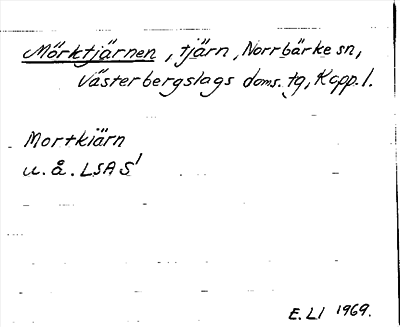 Mörktjärnen, tjärn, Norrbärke sn,
Västerbergslags doms. tg, Kopp. l.
Mortkiärn
u. å. LSA S1
E. LI 1969.